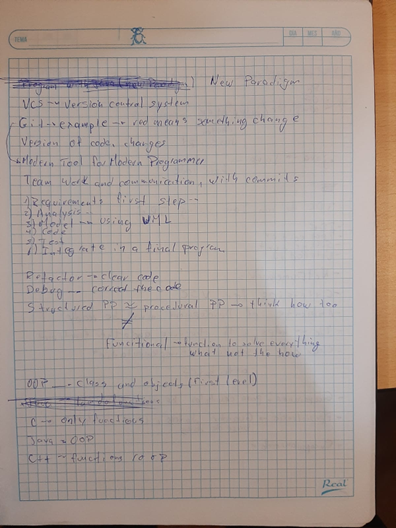 New Paradigm
VCS → Version control system
Git → example → red means something change
Version of code, changes
Modern Tool for Modern Programmer
Team work and communication, with commits
1) Requirements first step
2) Analysis
3) Model → using UML
4) Code
5) Test
6) Integrate in a final program
Refactor → clear code
Debug → correct the code
Structured PP ≈ procedural PP → think how too
≠
Functional → function to solve everything
what not the how
OOP → class and objects (First level)
C → only functions
Java → OOP
C++ → functions OOP
Real